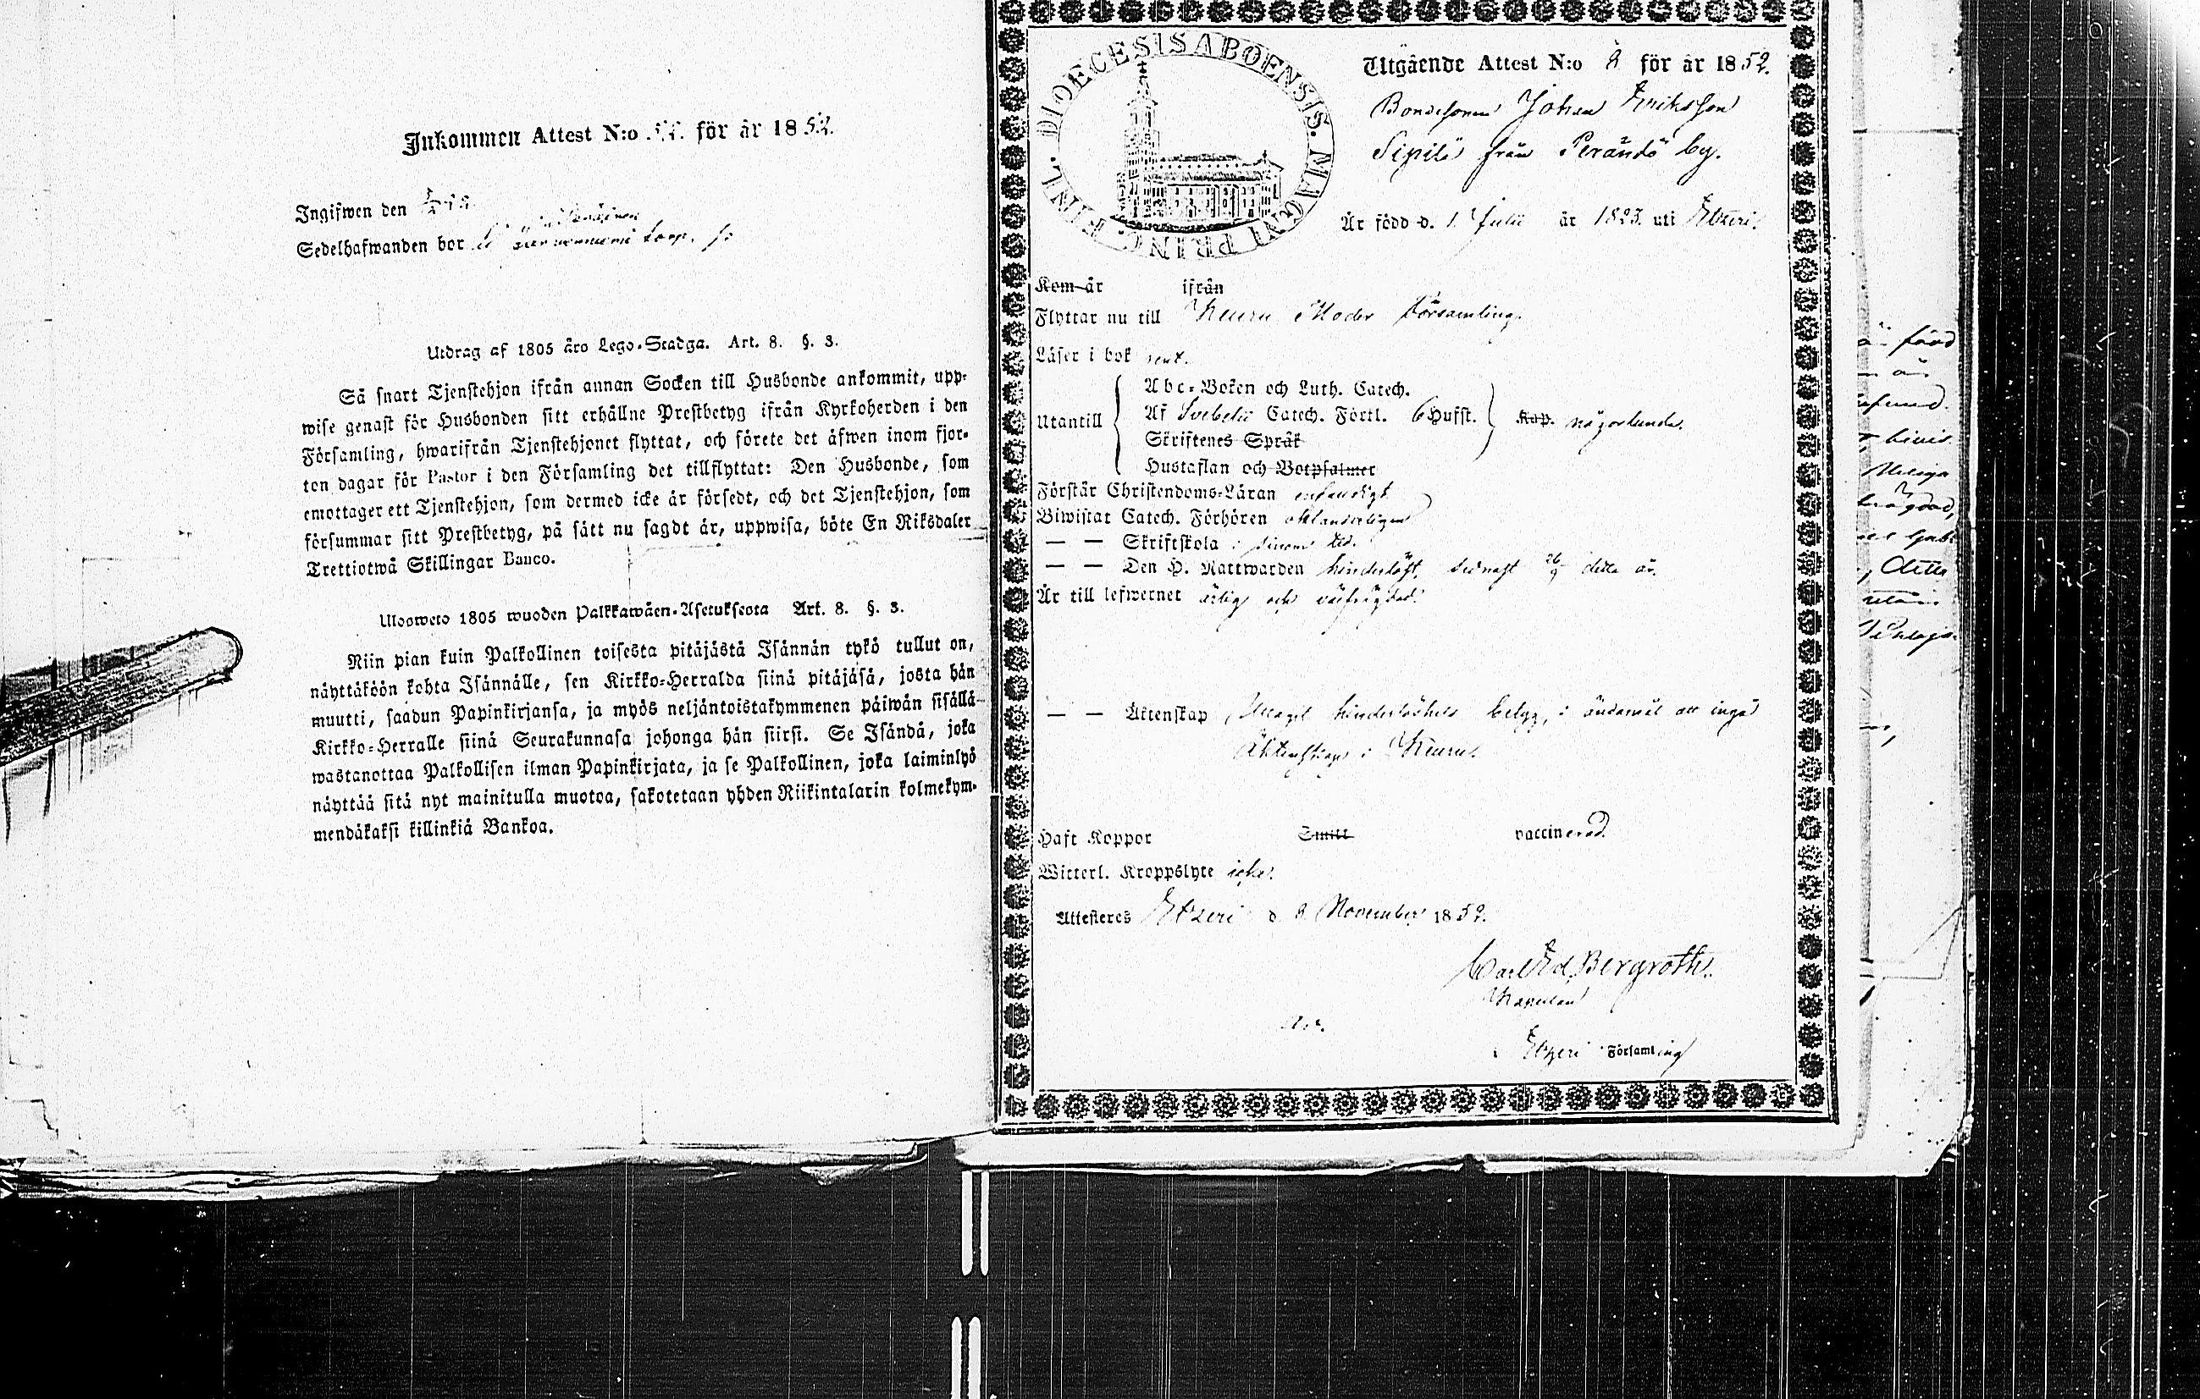 Inkommen Attest N:o för år 1852.
Ingifwen den
Sedelhafwanden bor
Utdrag af 1805 åro Lego-Stadga. Art. 8. §. 3.
Så snart Tjenstehjon ifrån annan Socken till Husbonde ankommit, upp-
wise genast för Husbonden sitt erhållne Prestbetyg ifrån Kyrkoherden i den
Församling, hwarifrån Tjenstehjonet flyttat, och förete det äfwen inom fjor-
ton dagar för Pastor i den Församling det tillflyttat: Den Husbonde, som
emottager ett Tjenstehjon, som dermed icke är försedt, och det Tjenstehjon, som
försummar sitt Prestbetyg, på sätt nu sagdt är, uppwisa, böte En Riksdaler
Trettiotwå Skillingar Banco.
Ulosweto 1805 wuoden Palkkawäen-Asetuksesta Art. 8. §. 3.
Niin pian kuin Palkollinen toisesta pitäjästä Isännän tykö tullut on,
näyttäköön kohta Isännälle, sen Kirkko-Herralda siinä pitäjäsä, josta hän
muutti, saadun Papinkirjansa, ja myös neljäntoistakymmenen päiwän sisällä
Kirkko-Herralle siinä Seurakunnasa johonga hän siirsi. Se Isändä, joka
wastanottaa Palkollisen ilman Papinkirjata, ja se Palkollinen, joka laiminlyö
näyttää sitä nyt mainitulla muotoa, sakotetaan yhden Riikintalarin kolmekym-
mendäkaksi killinkiä Bankoa.
DIOECESIS ABOENSIS. MAGNI PRINC. FINL.
Utgående Attest N:o 8 för år 1852.
Bondesonen Johan Eriksson
Sipilä från Perändö by.
Är född d. 1 Julii år 1823. uti Etzeri.
Kom år ifrån
Flyttar nu till Keuru Moder Församling.
Läser i bok rent.
Utantill
Abc-Boken och Luth. Catech.
Af Svebelii Catech. Förkl. 6 Hufst. Kap. någorlunda.
Skriftenes Språk
Hustaflan och Botpsalmer
Förstår Christendoms-Läran
Biwistat Catech. Förhören oklanderligen
— — Skriftskola i sinom tid.
— — Den H. Nattwarden hinderlöst, senast 26/9 detta år.
Är till lefwernet ärlig och wälfrägdad.
— — Äktenskap hinderlöshets betyg, i ändamål att ingå
Äktenskap i Keuru.
Haft Koppor Smitt vaccinerad.
Witterl. Kroppslyte icke.
Attesteres Etzeri d 8 November 1852.
Carl Ed. Bergroth.
Kapellan
Etzeri Församling